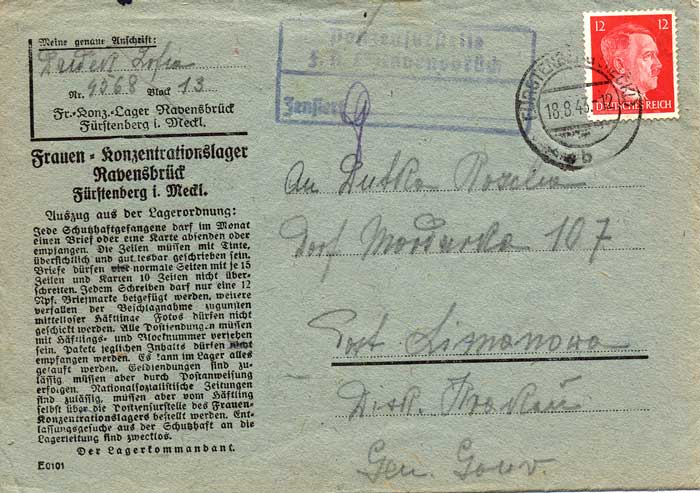 Meine genaue Anschrift:
Zofia
Nr. 9568 Block 13
Fr.-Konz.-Lager Ravensbrück
Fürstenberg i. Meckl.
Frauen-Konzentrationslager
Ravensbrück
Fürstenberg i. Meckl.
Auszug aus der Lagerordnung:
Jede Schutzhaftgefangene darf im Monat
einen Brief oder eine Karte absenden oder
empfangen. Die Zeilen müssen mit Tinte,
übersichtlich und gut lesbar geschrieben sein.
Briefe dürfen normale Seiten mit je 15
Zeilen und Karten 10 Zeilen nicht über-
schreiten. Jedem Schreiben darf nur eine 12
Rpf. Briefmarke beigefügt werden, weitere
verfallen der Beschlagnahme zugunsten
mittelloser Häftlinge. Fotos dürfen nicht
geschickt werden. Alle Postsendungen müssen
mit Häftlings- und Blocknummer versehen
sein. Pakete jeglichen Inhalts dürfen nicht
empfangen werden. Es kann im Lager alles
gekauft werden. Geldsendungen sind zu-
lässig, müssen aber durch Postanweisung
erfolgen. Nationalsozialistische Zeitungen
sind zulässig, müssen aber vom Häftling
selbst über die Postzensurstelle des Frauen-
Konzentrationslagers bestellt werden. Ent-
lassungsgesuche aus der Schutzhaft an die
Lagerleitung sind zwecklos.
Der Lagerkommandant.
E0101
Postzensurstelle
F.K.L. Ravensbrück
Zensiert
FÜRSTENBERG (MECKL)
18.8.43.-12
b
12 12
DEUTSCHES REICH
An Dutka Rozalia
Dorf Mordarka 107
Post Limanowa
Distr. Krakau
Gen. Gouv.